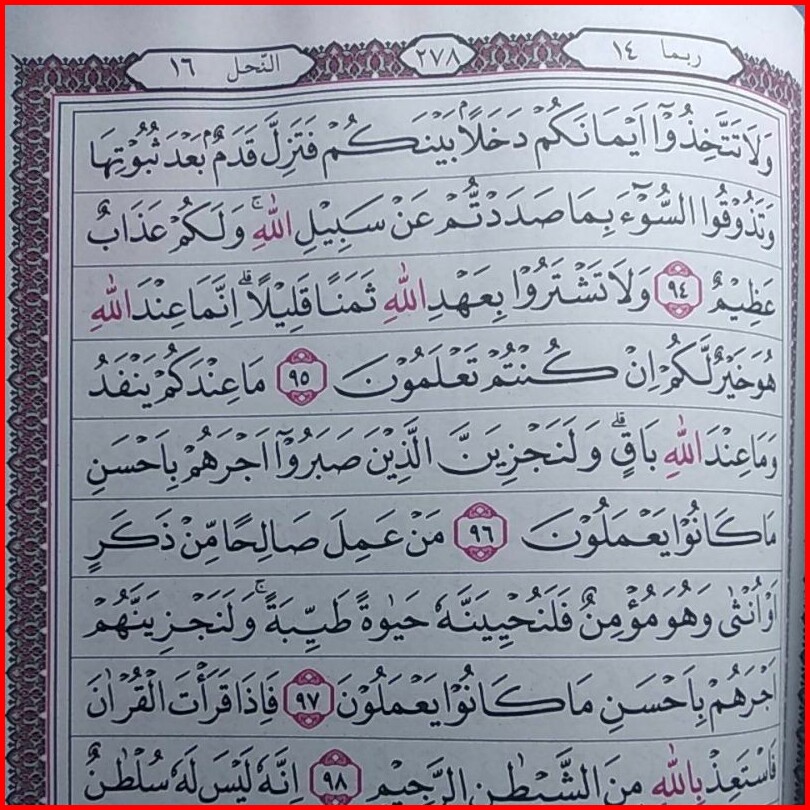 ربما ١٤
٢٧٨
النّحل ١٦
وَلَا تَتَّخِذُوْٓا اَيْمَانَكُمْ دَخَلًاۢ بَيْنَكُمْ فَتَزِلَّ قَدَمٌۢ بَعْدَ ثُبُوْتِهَا
وَتَذُوْقُوا السُّوْۤءَ بِمَا صَدَدْتُّمْ عَنْ سَبِيْلِ اللّٰهِ ۚ وَلَكُمْ عَذَابٌ
عَظِيْمٌ ٩٤ وَلَا تَشْتَرُوْا بِعَهْدِ اللّٰهِ ثَمَنًا قَلِيْلًا ۗ اِنَّمَا عِنْدَ اللّٰهِ
هُوَ خَيْرٌ لَّكُمْ اِنْ كُنْتُمْ تَعْلَمُوْنَ ٩٥ مَا عِنْدَكُمْ يَنْفَدُ
وَمَا عِنْدَ اللّٰهِ بَاقٍ ۗ وَلَنَجْزِيَنَّ الَّذِيْنَ صَبَرُوْٓا اَجْرَهُمْ بِاَحْسَنِ
مَا كَانُوْا يَعْمَلُوْنَ ٩٦ مَنْ عَمِلَ صَالِحًا مِّنْ ذَكَرٍ
اَوْ اُنْثٰى وَهُوَ مُؤْمِنٌ فَلَنُحْيِيَنَّهٗ حَيٰوةً طَيِّبَةً ۚ وَلَنَجْزِيَنَّهُمْ
اَجْرَهُمْ بِاَحْسَنِ مَا كَانُوْا يَعْمَلُوْنَ ٩٧ فَاِذَا قَرَأْتَ الْقُرْاٰنَ
فَاسْتَعِذْ بِاللّٰهِ مِنَ الشَّيْطٰنِ الرَّجِيْمِ ٩٨ اِنَّهٗ لَيْسَ لَهٗ سُلْطٰنٌ